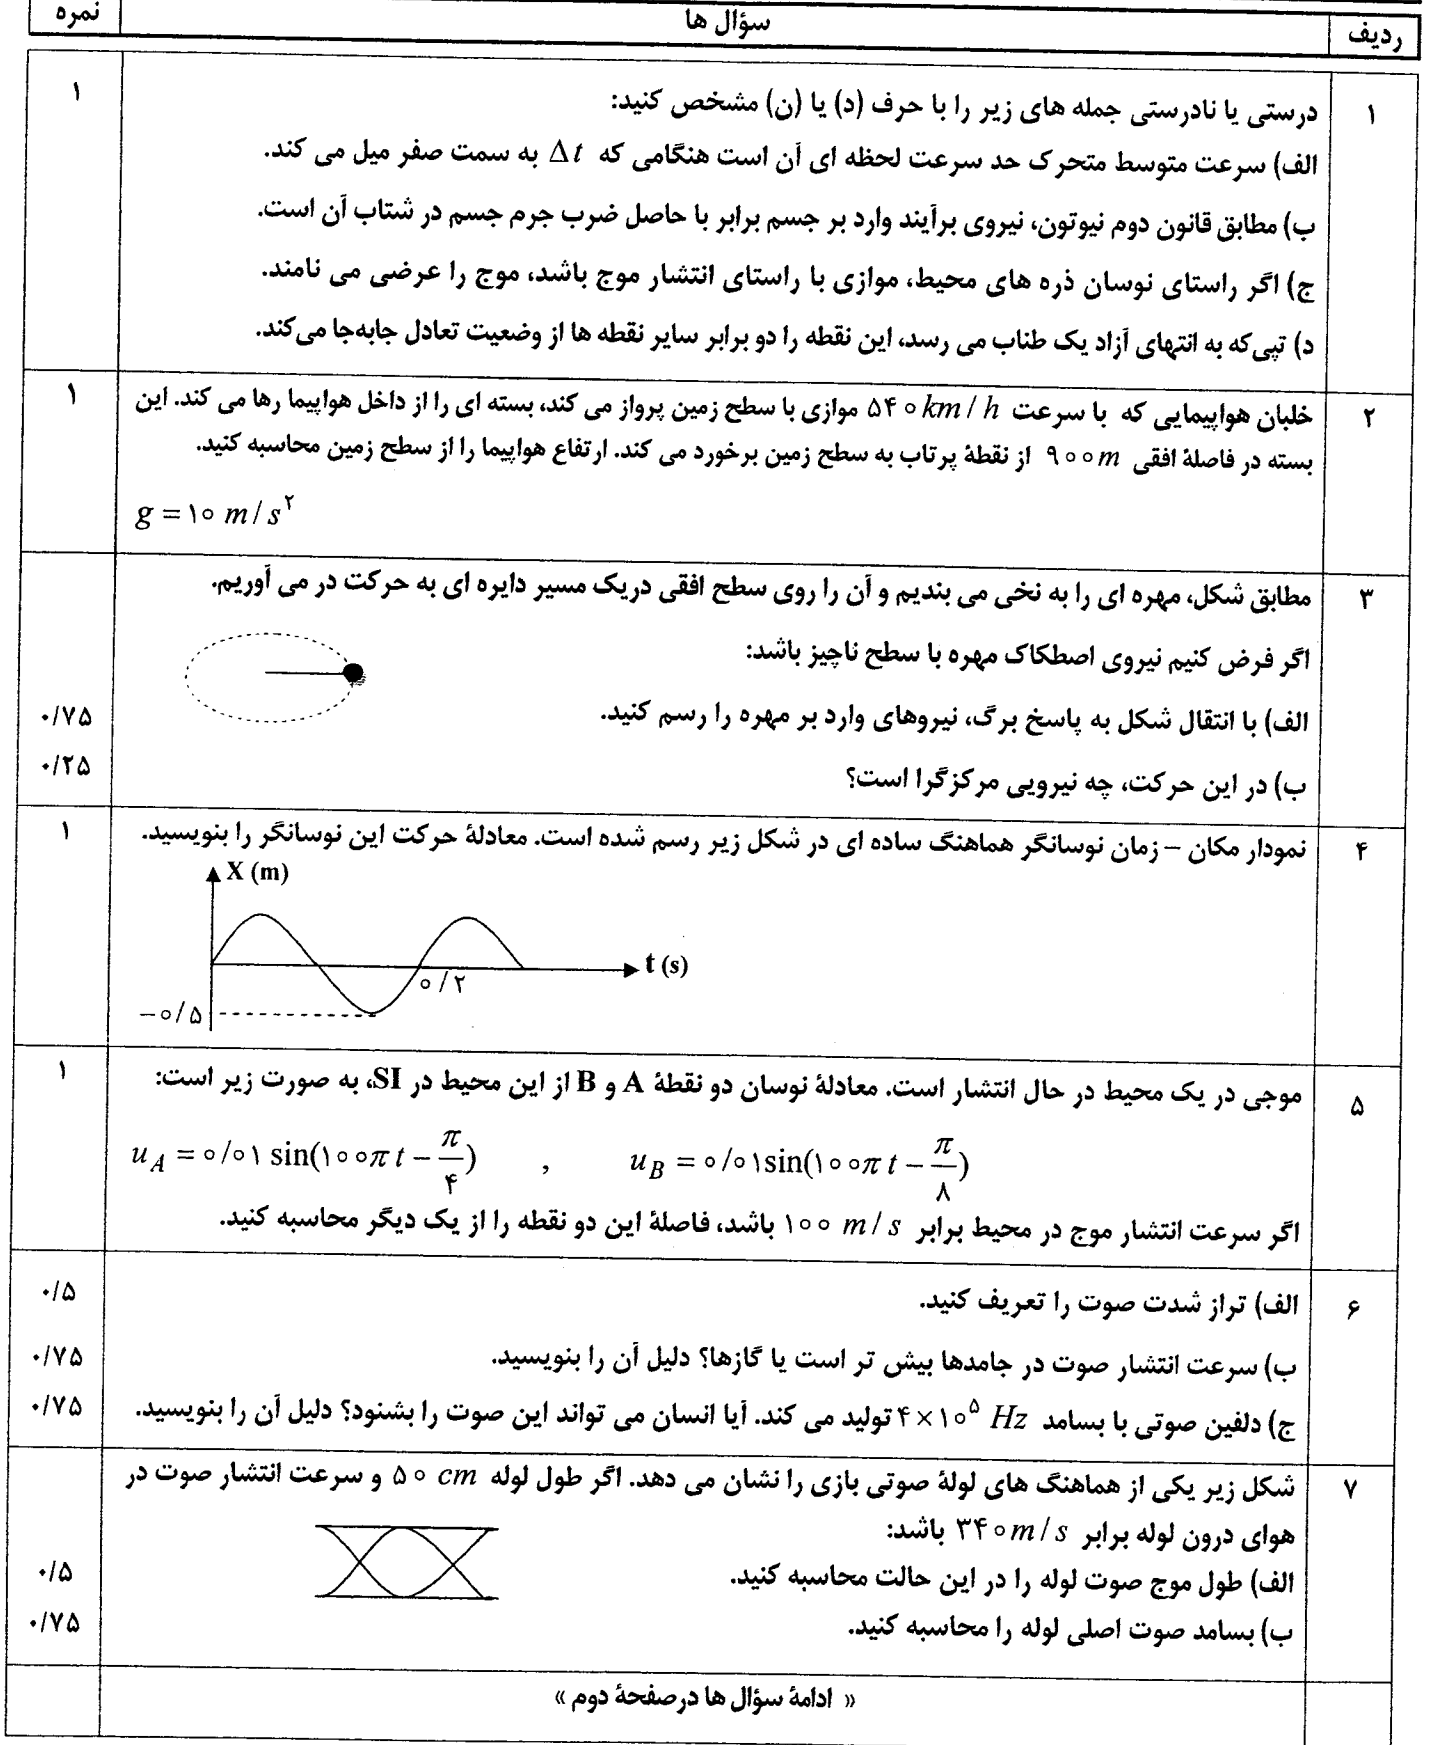 ردیف	سؤال ها	نمره
۱	درستی یا نادرستی جمله های زیر را با حرف (د) یا (ن) مشخص کنید:	۱
الف) سرعت متوسط متحرک حد سرعت لحظه ای آن است هنگامی که Δt به سمت صفر میل می کند.
ب) مطابق قانون دوم نیوتون، نیروی برآیند وارد بر جسم برابر با حاصل ضرب جرم جسم در شتاب آن است.
ج) اگر راستای نوسان ذره های محیط، موازی با راستای انتشار موج باشد، موج را عرضی می نامند.
د) تپی‌که به انتهای آزاد یک طناب می رسد، این نقطه را دو برابر سایر نقطه ها از وضعیت تعادل جابه‌جا می‌کند.
۲	خلبان هواپیمایی که با سرعت ۵۴۰ km/h موازی با سطح زمین پرواز می کند، بسته ای را از داخل هواپیما رها می کند. این	۱
بسته در فاصلهٔ افقی ۹۰۰ m از نقطهٔ پرتاب به سطح زمین برخورد می کند. ارتفاع هواپیما را از سطح زمین محاسبه کنید.
g = ۱۰ m/s²
۳	مطابق شکل، مهره ای را به نخی می بندیم و آن را روی سطح افقی دریک مسیر دایره ای به حرکت در می آوریم.
اگر فرض کنیم نیروی اصطکاک مهره با سطح ناچیز باشد:
الف) با انتقال شکل به پاسخ برگ، نیروهای وارد بر مهره را رسم کنید.	۰/۷۵
ب) در این حرکت، چه نیرویی مرکزگرا است؟	۰/۲۵
۴	نمودار مکان – زمان نوسانگر هماهنگ ساده ای در شکل زیر رسم شده است. معادلهٔ حرکت این نوسانگر را بنویسید.	۱
X (m)
t (s)
۰/۲
−۰/۵
۵	موجی در یک محیط در حال انتشار است. معادلهٔ نوسان دو نقطهٔ A و B از این محیط در SI، به صورت زیر است:	۱
u_A = ۰/۰۱ sin(۱۰۰π t − π/۴) , u_B = ۰/۰۱ sin(۱۰۰π t − π/۸)
اگر سرعت انتشار موج در محیط برابر ۱۰۰ m/s باشد، فاصلهٔ این دو نقطه را از یک دیگر محاسبه کنید.
۶	الف) تراز شدت صوت را تعریف کنید.	۰/۵
ب) سرعت انتشار صوت در جامدها بیش تر است یا گازها؟ دلیل آن را بنویسید.	۰/۷۵
ج) دلفین صوتی با بسامد ۴×۱۰⁵ Hz تولید می کند. آیا انسان می تواند این صوت را بشنود؟ دلیل آن را بنویسید.	۰/۷۵
۷	شکل زیر یکی از هماهنگ های لولهٔ صوتی بازی را نشان می دهد. اگر طول لوله ۵۰ cm و سرعت انتشار صوت در
هوای درون لوله برابر ۳۴۰ m/s باشد:
الف) طول موج صوت لوله را در این حالت محاسبه کنید.	۰/۵
ب) بسامد صوت اصلی لوله را محاسبه کنید.	۰/۷۵
« ادامهٔ سؤال ها درصفحهٔ دوم »